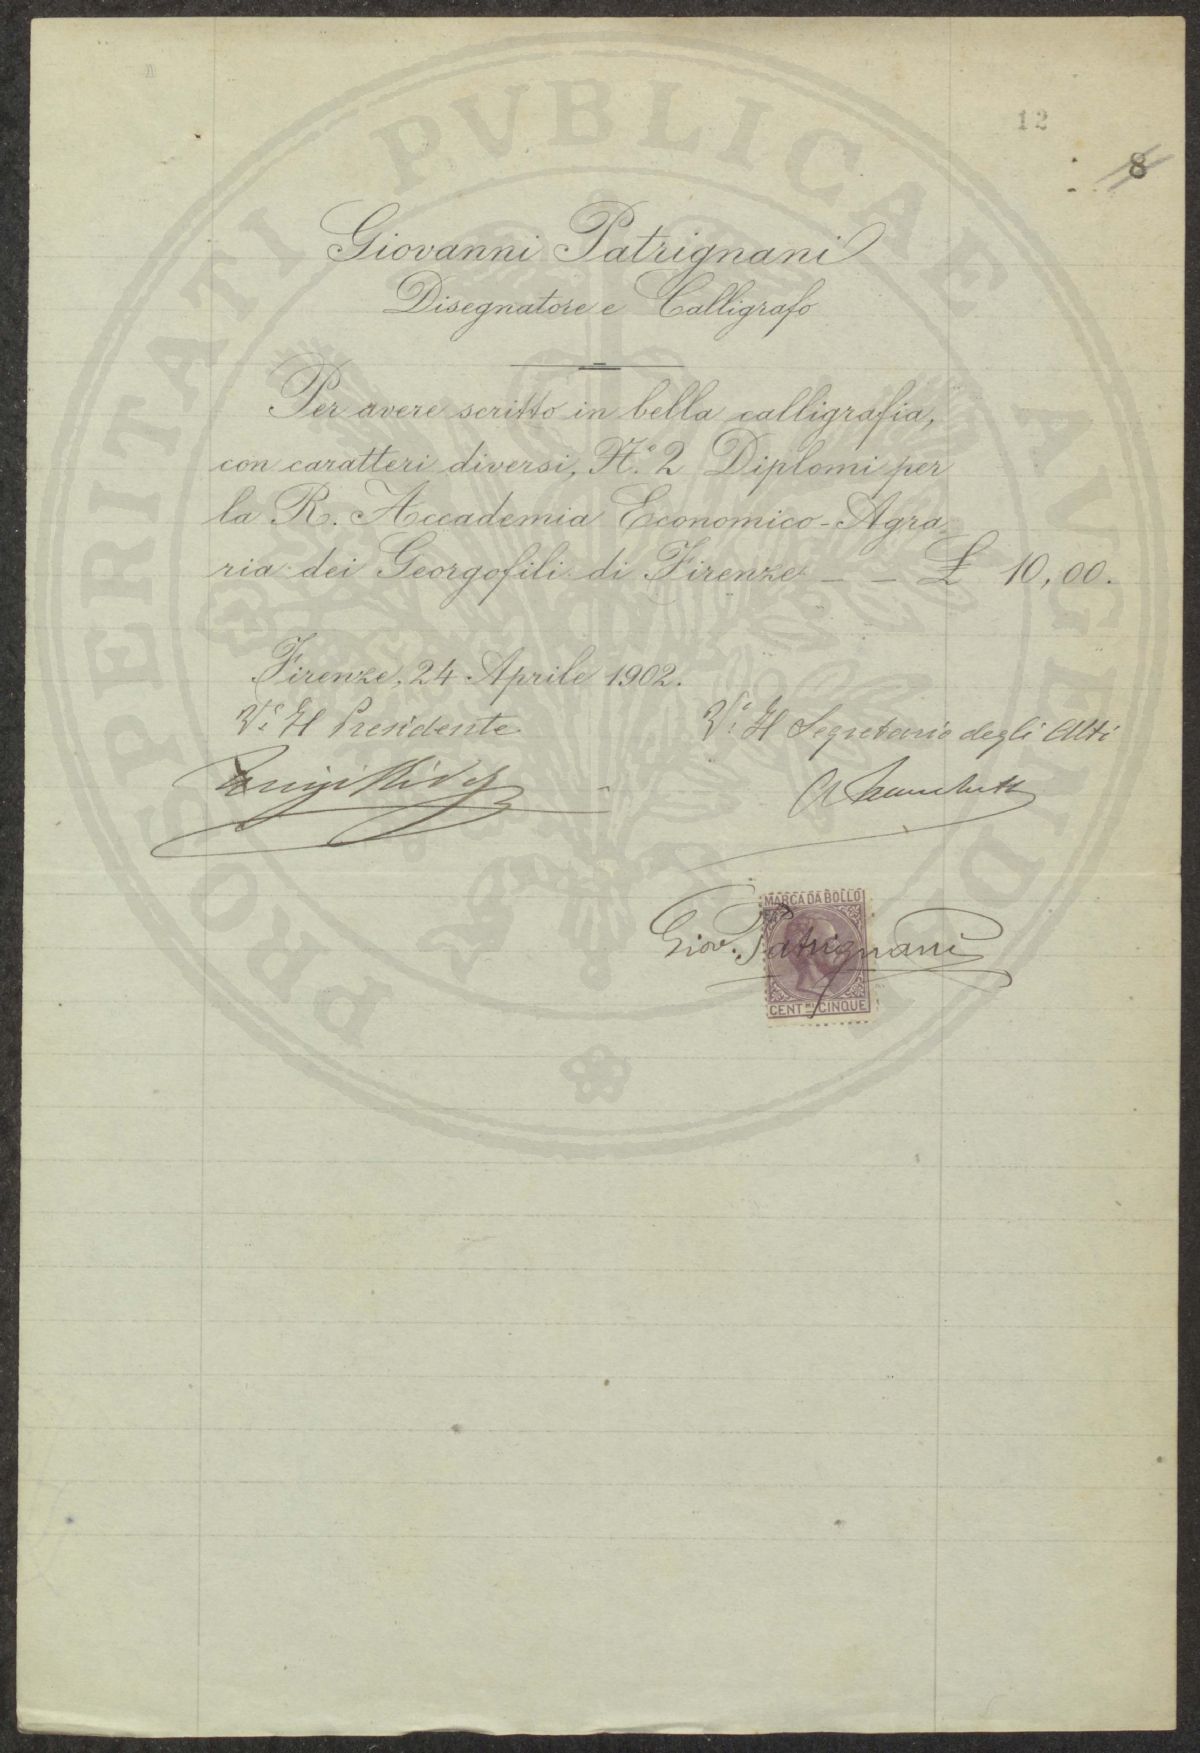 12
8
Giovanni Patrignani
Disegnatore e Calligrafo
Per avere scritto in bella calligrafia,
con caratteri diversi, N.º 2 Diplomi per
la R. Accademia Economico-Agra-
ria dei Georgofili di Firenze — — £ 10,00.
Firenze, 24 Aprile 1902.
Vº Il Presidente
Vº Il Segretario degli Atti
Luigi Ridolfi
MARCA DA BOLLO
Giov. Patrignani
CENT.MI CINQUE
PROSPERITATI PVBLICAE AVGENDAE